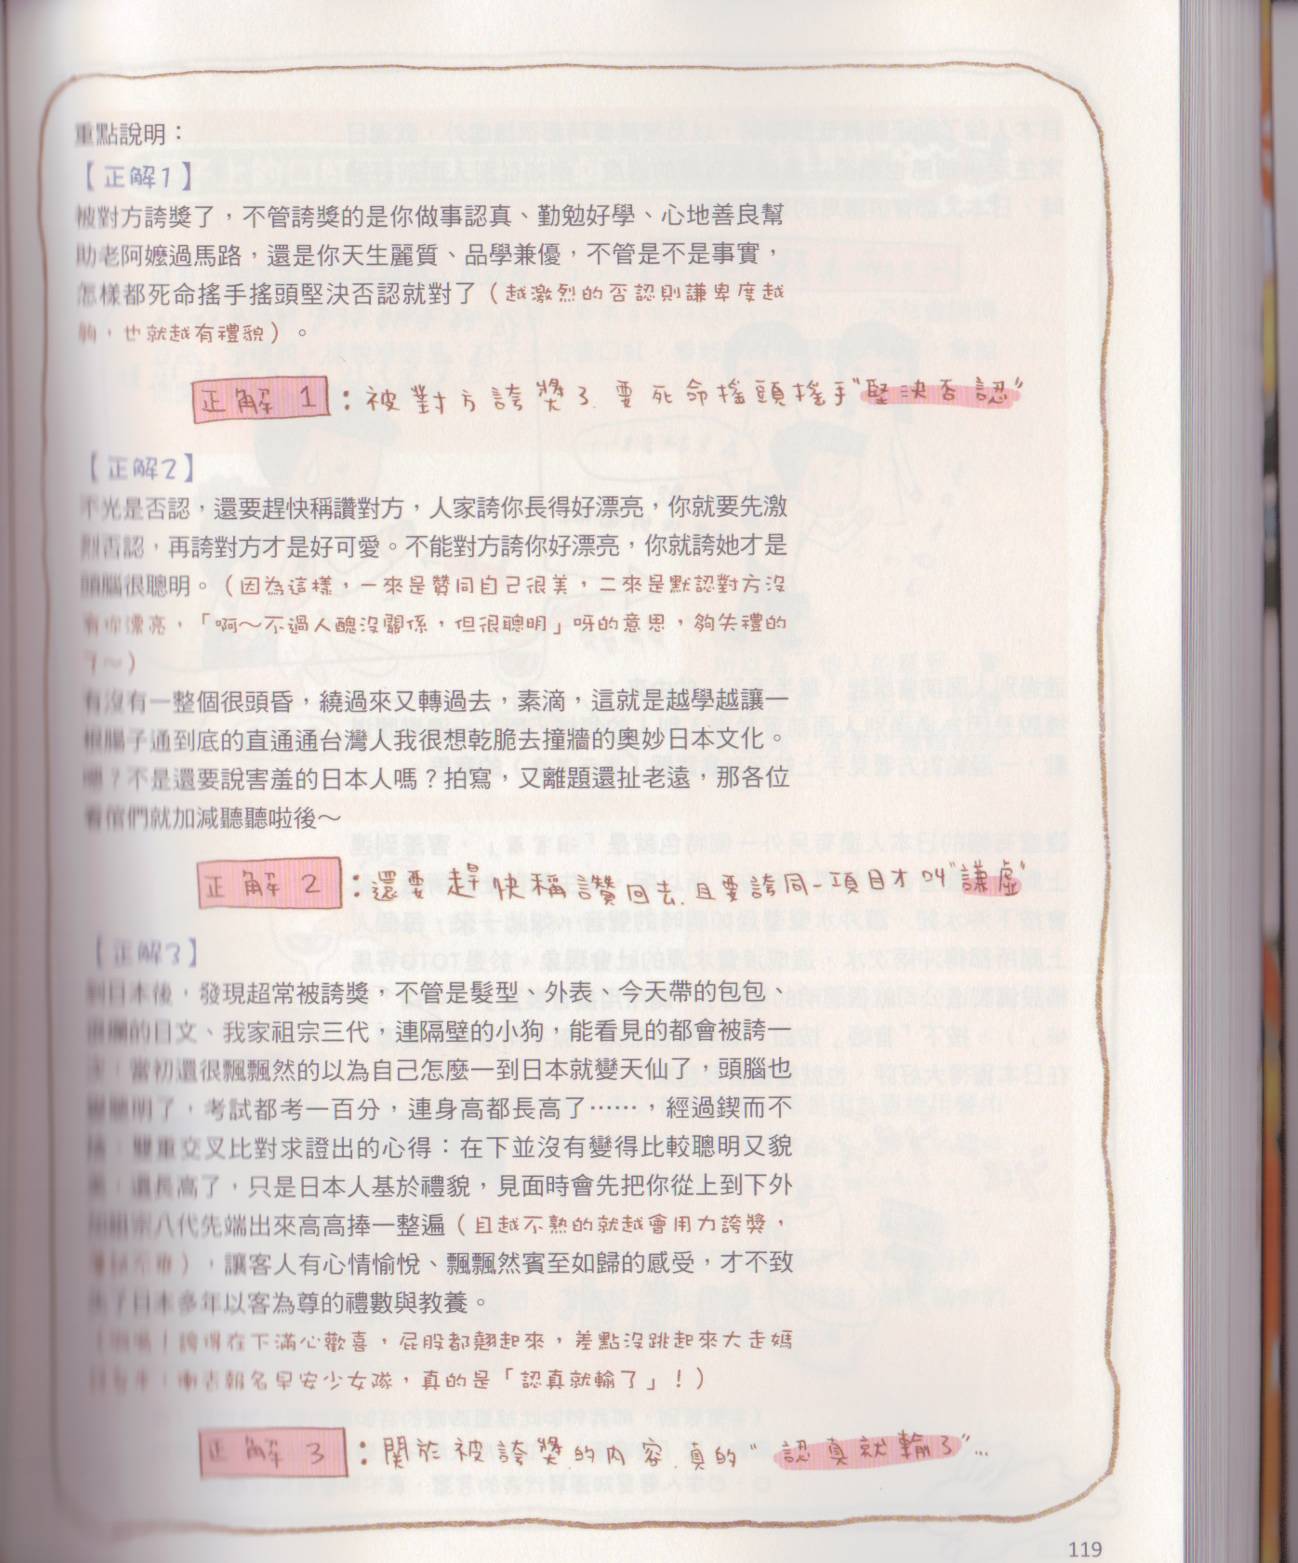 重點說明：
【正解1】
被對方誇獎了，不管誇獎的是你做事認真、勤勉好學、心地善良幫
助老阿嬤過馬路，還是你天生麗質、品學兼優，不管是不是事實，
怎樣都死命搖手搖頭堅決否認就對了（越激烈的否認則謙卑度越
夠，也就越有禮貌）。
正解1：被對方誇獎了.要死命搖頭搖手"堅決否認"
【正解2】
不光是否認，還要趕快稱讚對方，人家誇你長得好漂亮，你就要先激
烈否認，再誇對方才是好可愛。不能對方誇你好漂亮，你就誇她才是
頭腦很聰明。（因為這樣，一來是贊同自己很美，二來是默認對方沒
有你漂亮，「啊～不過人醜沒關係，但很聰明」呀的意思，夠失禮的
了～）
有沒有一整個很頭昏，繞過來又轉過去，素滴，這就是越學越讓一
根腸子通到底的直通通台灣人我很想乾脆去撞牆的奧妙日本文化。
嗯？不是還要說害羞的日本人嗎？拍寫，又離題還扯老遠，那各位
看倌們就加減聽聽啦後～
正解2：還要趕快稱讚回去.且要誇同一項目才叫"謙虛"
【正解3】
到日本後，發現超常被誇獎，不管是髮型、外表、今天帶的包包、
的日文、我家祖宗三代，連隔壁的小狗，能看見的都會被誇一
次，當初還很飄飄然的以為自己怎麼一到日本就變天仙了，頭腦也
變聰明了，考試都考一百分，連身高都長高了⋯⋯，經過鍥而不
捨，雙重交叉比對求證出的心得：在下並沒有變得比較聰明又貌
美，還長高了，只是日本人基於禮貌，見面時會先把你從上到下外
加祖宗八代先端出來高高捧一整遍（且越不熟的就越會用力誇獎，
），讓客人有心情愉悅、飄飄然賓至如歸的感受，才不致
失了日本多年以客為尊的禮數與教養。
誇得在下滿心歡喜，屁股都翹起來，差點沒跳起來大走媽
，衝去報名早安少女隊，真的是「認真就輸了」！）
正解3：關於被誇獎的內容.真的"認真就輸了"...
119